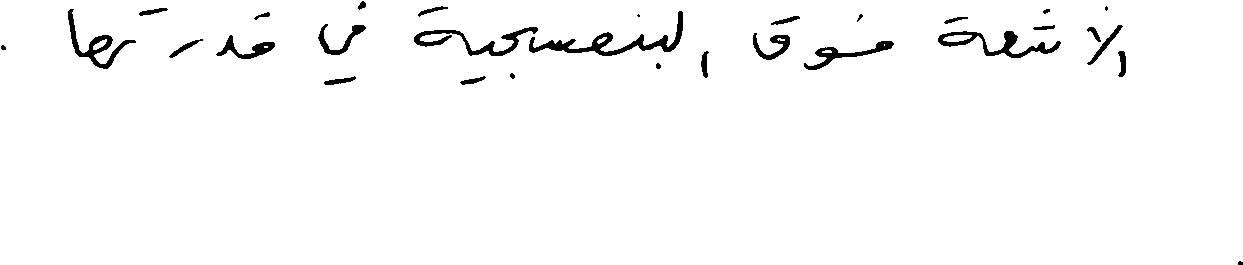 الأشعة فوق البنفسجية في قدرتها .